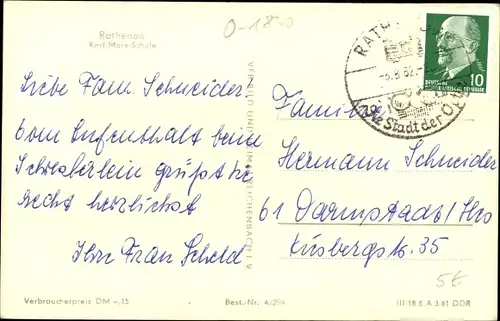 Rathenow
Karl-Marx-Schule
0-18.0
Liebe Fam. Schneider
Vom Aufenthalt beim
grüßt Sie
recht herzlichst
Ihr Frau Scheld
VERBILD UND HEIMAT REICHENBACH I. V.
RATHENOW
-3.8.62.-
Die Stadt der Optik
DEUTSCHE
DEMOKRATISCHE REPUBLIK
10
Familie
Hermann Schneider
61 Darmstadt/Hes
35
5€
Verbraucherpreis DM -,15
Best.-Nr. 4/294
III 18 6 A 3.61 DDR